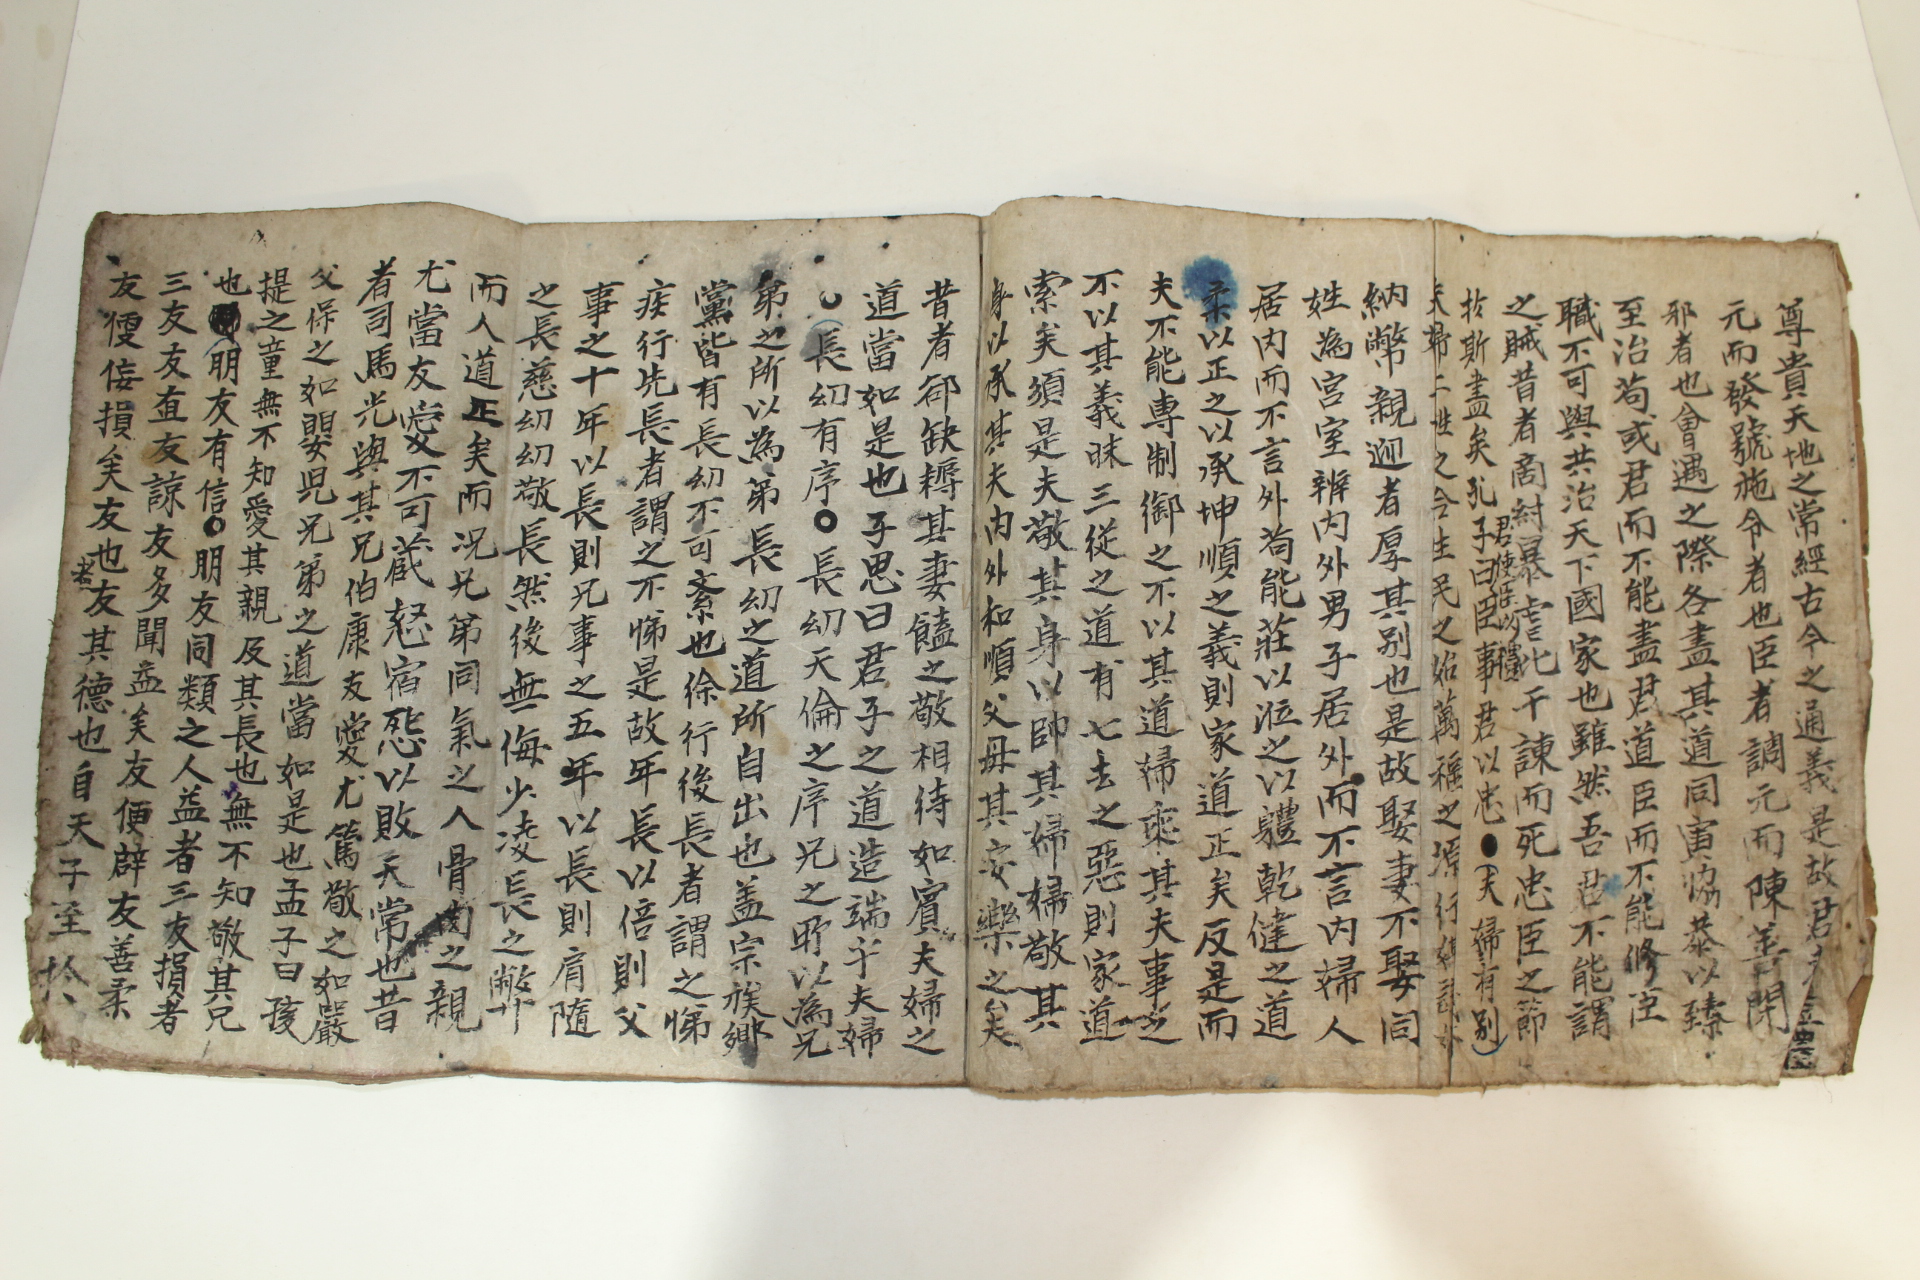 尊貴天地之常經古今之通義是故君
元而發號施令者也臣者調元而陳善閉
邪者也會遇之際各盡其道同寅協恭以臻
至治苟或君而不能盡君道臣而不能修臣
職不可與共治天下國家也雖然吾君不能謂
之賊昔者商紂暴虐比干諫而死忠臣之節
於斯盡矣孔子曰臣事君以忠●夫婦有別
君使臣以禮
夫婦二姓之合生民之始萬福之源行媒議
納幣親迎者厚其別也是故娶妻不娶同
姓為宮室辨內外男子居外而不言內婦人
居內而不言外苟能莊以涖之以軆乾健之道
柔以正之以承坤順之義則家道正矣反是而
夫不能專制御之不以其道婦乘其夫事之
不以其義昧三從之道有七去之惡則家道
索矣須是夫敬其身以帥其婦婦敬其
身以承其夫內外和順父母其安樂之矣
昔者郤缺耨其妻饁之敬相待如賓夫婦之
道當如是也子思曰君子之道造端乎夫婦
○長幼有序○長幼天倫之序兄之所以為兄
弟之所以為弟長幼之道所自出也盖宗族鄉
黨皆有長幼不可紊也徐行後長者謂之悌
疾行先長者謂之不悌是故年長以倍則父
事之十年以長則兄事之五年以長則肩隨
之長慈幼幼敬長然後無侮少凌長之弊
而人道正矣而况兄弟同氣之人骨肉之親
尤當友愛不可藏怒宿怨以敗天常也昔
者司馬光與其兄伯康友愛尤篤敬之如嚴
父保之如嬰児兄弟之道當如是也孟子曰孩
提之童無不知愛其親及其長也無不知敬其兄
也朋友有信○朋友同類之人益者三友損者
三友友直友諒友多聞益矣友便辟友善柔
友便佞損矣友也者友其德也自天子至於